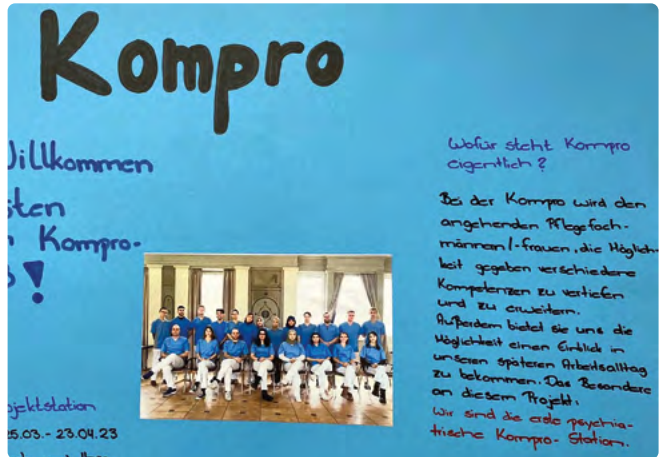 Kompro
Willkommen
sten
Kompro-
!
ojektstation
25.03.- 23.04.23
Wofür steht Kompro
eigentlich?
Bei der Kompro wird den
angehenden Pflegefach-
männern/-frauen, die Möglich-
keit gegeben verschiedene
Kompetenzen zu vertiefen
und zu erweitern.
Außerdem bietet sie uns die
Möglichkeit einen Einblick in
unseren späteren Arbeitsalltag
zu bekommen. Das Besondere
an diesem Projekt:
Wir sind die erste psychia-
trische Kompro-Station.